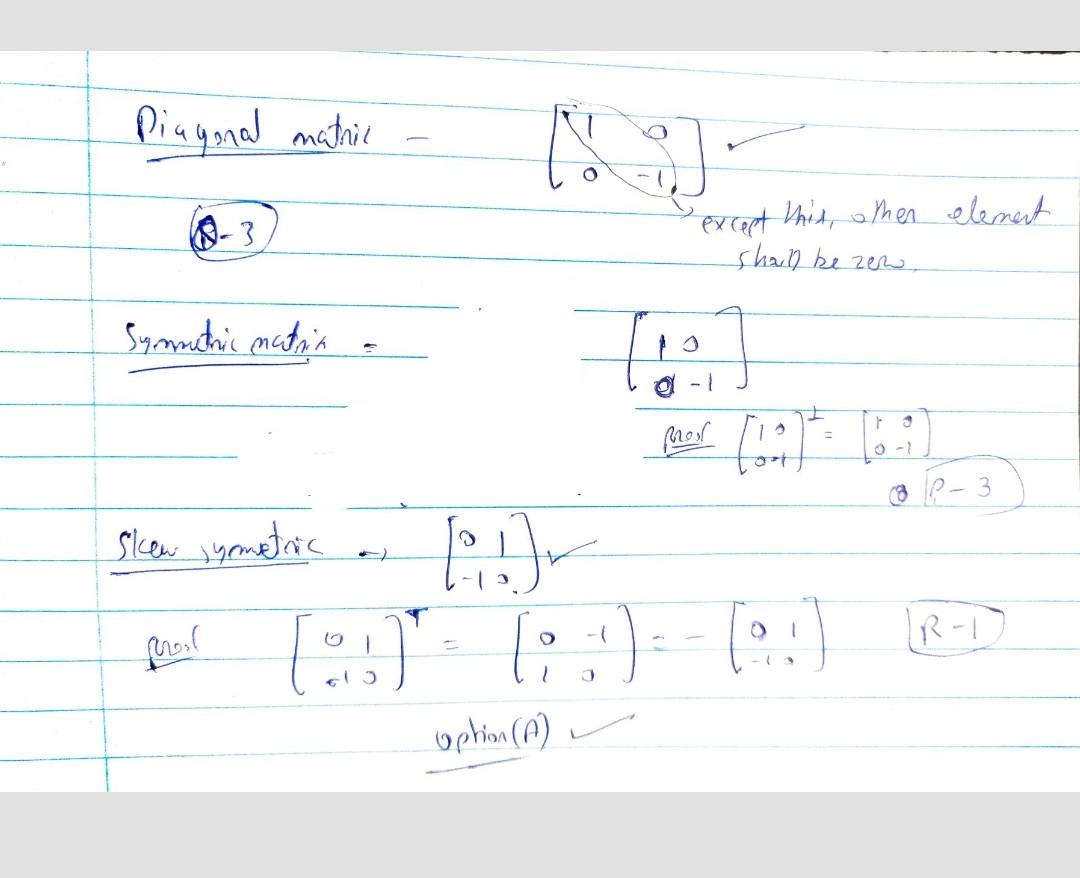 Diagonal matric - [1 0
0 -1] ✓
-3
except this, other element
shall be zero.
Symmetric matrix = [1 0
0 -1]
proof [1 0
0 -1]ᵗ = [1 0
0 -1]
P-3
Skew symmetric → [0 1
-1 0] ✓
proof [0 1
-1 0]ᵀ = [0 -1
1 0] = - [0 1
-1 0] R-1
option (A) ✓